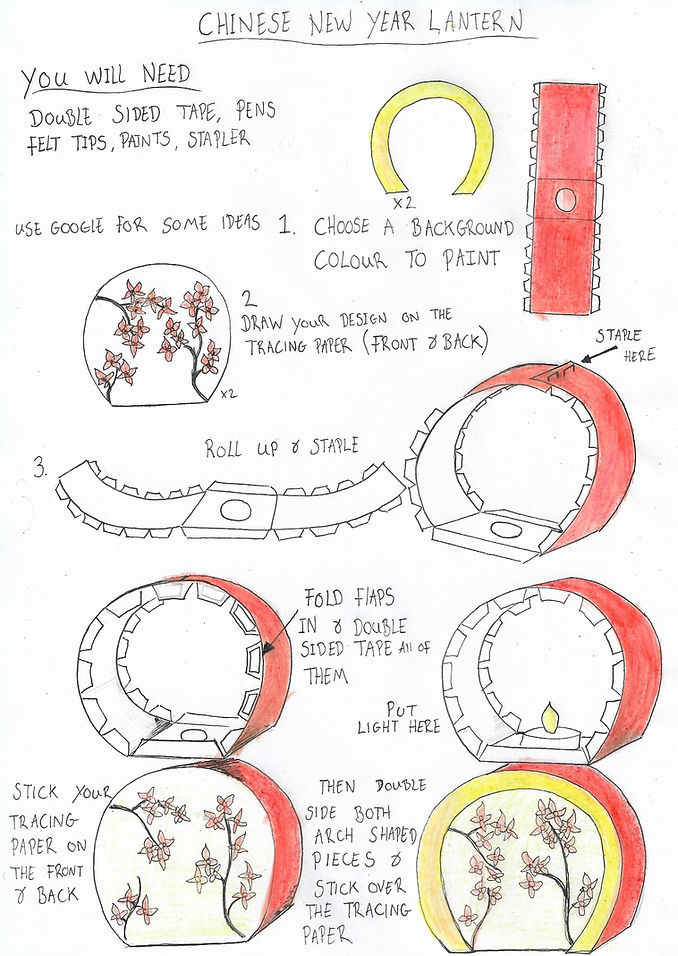 CHINESE NEW YEAR LANTERN
YOU WILL NEED
DOUBLE SIDED TAPE, PENS
FELT TIPS, PAINTS, STAPLER
x2
USE GOOGLE FOR SOME IDEAS
1. CHOOSE A BACKGROUND
COLOUR TO PAINT
2
DRAW YOUR DESIGN ON THE
TRACING PAPER (FRONT & BACK)
x2
STAPLE
HERE
3.
ROLL UP & STAPLE
FOLD FLAPS
IN & DOUBLE
SIDED TAPE All of
THEM
PUT
LIGHT HERE
STICK YOUR
TRACING
PAPER ON
THE FRONT
& BACK
THEN DOUBLE
SIDE BOTH
ARCH SHAPED
PIECES &
STICK OVER
THE TRACING
PAPER